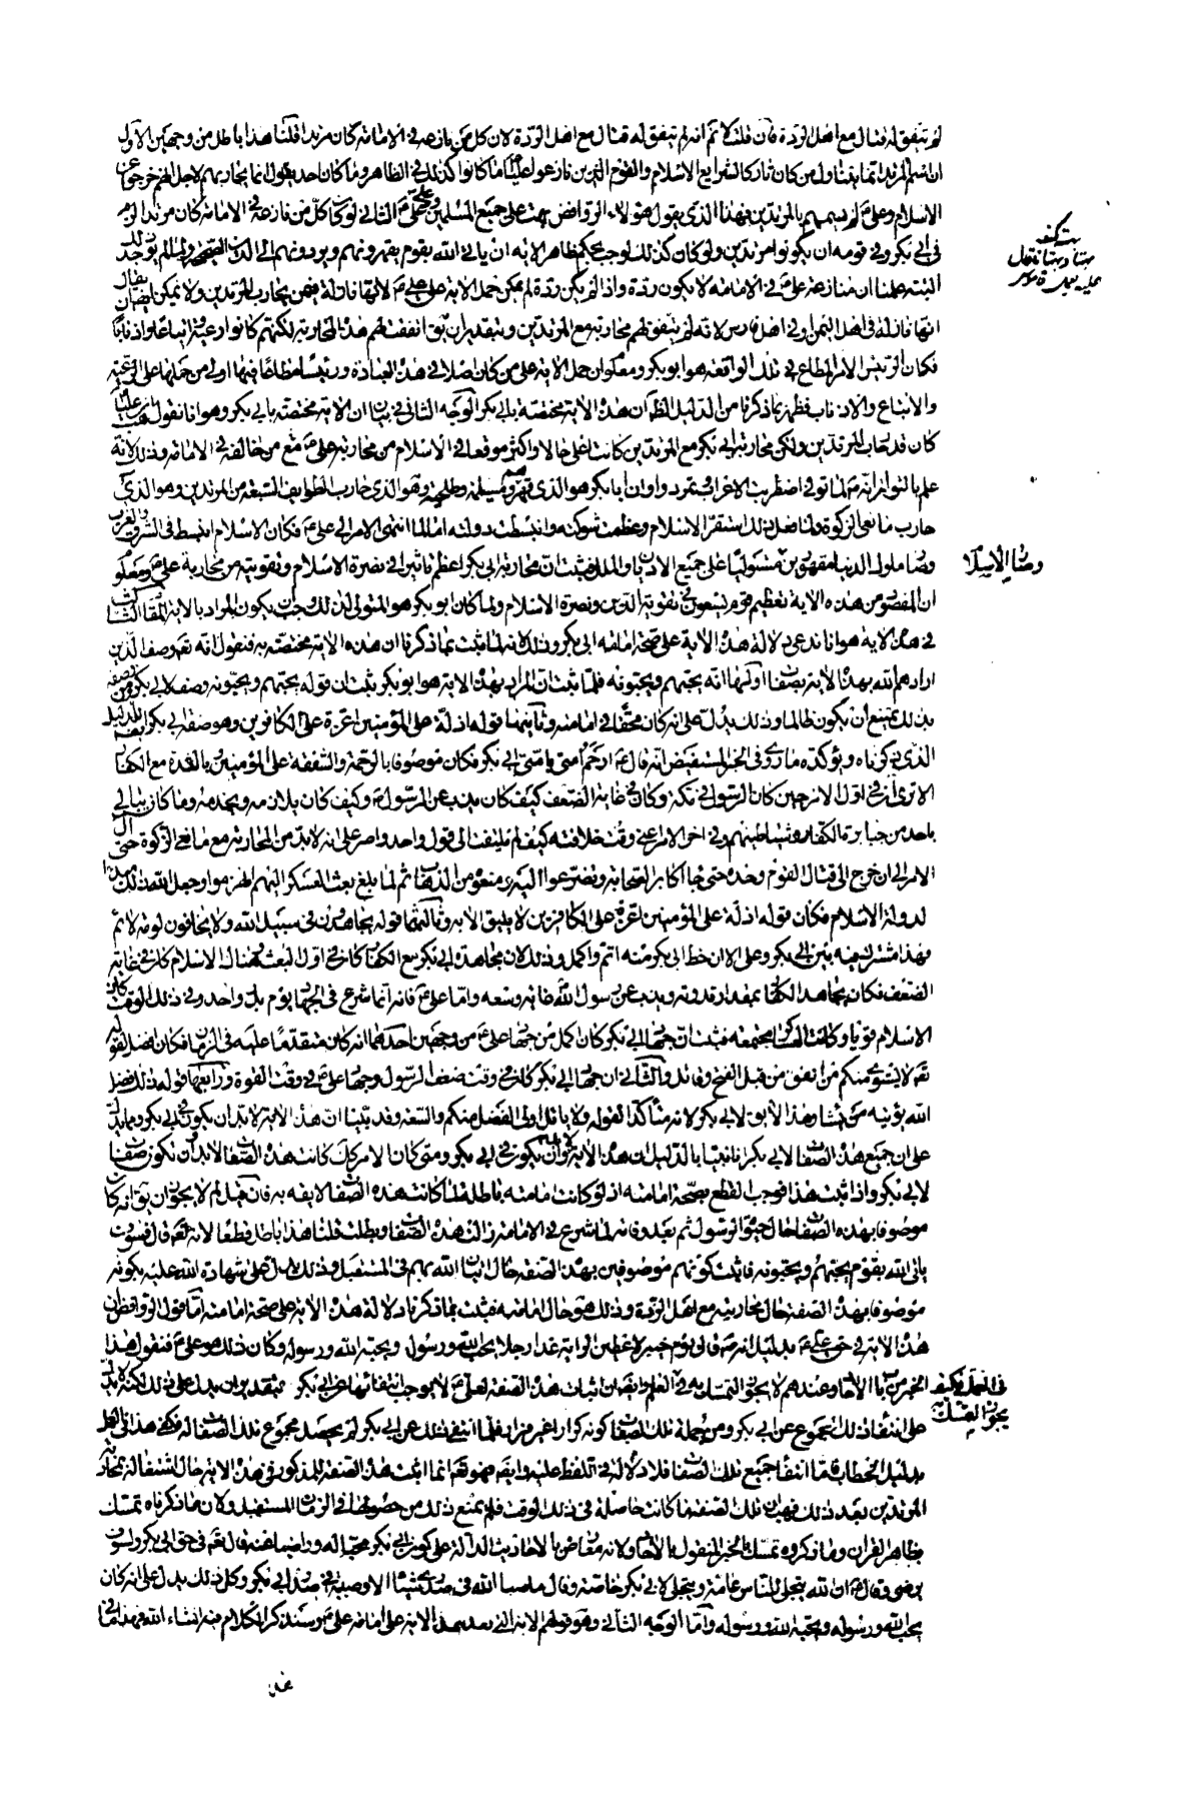 لم يتفق له قتال مع اهل الردة فان قلت لا نم انه لم يتفق له قتال مع اهل الردة لان كل من نازعه فى الامامة كان مرتدا قلنا هذا باطل من وجهين الاول
ان اسم المرتد انما يتناول من كان تاركا لشرايع الاسلام والقوم الذين نازعوا عليا ما كانوا كذلك فى الظاهر وما كان احد يقول انما يحاربهم لاجل انهم خرجوا عن
الاسلام وعلى لم يسمهم بالمرتدين فهذا الذى يقول هؤلاء الروافض بهت على جميع المسلمين وعلى على الثانى لو كان كل من نازعه فى الامامة كان مرتدا لزم
فى ابى بكر وفى قومه ان يكونوا مرتدين ولو كان كذلك لوجب بحكم ظاهر الاية ان ياتى الله بقوم يقهرونهم ويردونهم الى الدين الصحيح ولما لم يوجد ذلك
البتة علمنا ان منازعة على فى الامامة لا يكون ردة واذا لم يكن ردة لم يمكن حمل الاية على على لانها نازلة فيمن يحارب المرتدين ولا يمكن ايضا ان يقال
انها نازلة فى اهل اليمن او فى اهل فارس لانه لم يتفق لهم محاربة مع المرتدين وبتقدير ان يق اتفقت لهم هذه المحاربة لكنهم كانوا رعية واتباعا واذنابا
فكان الرئيس الامر المطاع فى تلك الواقعة هو ابو بكر ومعلوم ان حمل الاية على من كان اصلا فى هذه العبادة ورئيسا مطاعا فيها اولى من حملها على الرعية
والاتباع والاذناب فظهر بما ذكرنا من الدليل الظ ان هذه الاية مختصة بابى بكر الوجه الثانى فى بيان ان الاية مختصة بابى بكر وهو انا نقول هب ان عليا
كان قد حارب المرتدين ولكن محاربة ابى بكر مع المرتدين كانت اعلى حالا واكثر موقعا فى الاسلام من محاربة على مع من خالفه فى الامامة وذلك لانه
علم بالتواتر انه لما توفى اضطربت الاعراب وتمردوا وان ابا بكر هو الذى قهر مسيلمة وطليحة وهو الذى حارب الطوايف السبعة من المرتدين وهو الذى
حارب مانعى الزكوة ولما فعل ذلك استقر الاسلام وعظمت شوكته وانبسطت دولته اما لما انتهى الامر الى على فكان الاسلام انبسط فى الشرق والغرب
وصار ملوك الدنيا مقهورين مستوليا على جميع الاديان والملل فثبت ان محاربة ابى بكر اعظم تاثيرا فى نصرة الاسلام وتقويته من محاربة على ومعلوم
ان المقصود من هذه الاية تعظيم قوم يسعون فى تقوية الدين ونصرة الاسلام ولما كان ابو بكر هو المتولى لذلك وجب ان يكون المراد بالاية المقام الثالث
فى هذه الاية هو انا ندعى دلالة هذه الاية على صحة امامة ابى بكر وذلك لانه لما ثبت بما ذكرنا ان هذه الاية مختصة به فنقول انه تع وصف الذين
ارادهم الله بهذه الاية بصفات اولها انه يحبهم ويحبونه فلما ثبت ان المراد بهذه الاية هو ابو بكر ثبت ان قوله يحبهم ويحبونه وصف لابى بكر ومن وصفه
بذلك يمتنع ان يكون ظالما وذلك يدل على انه كان محقا فى امامته وثانيها قوله اذلة على المؤمنين اعزة على الكافرين وهو صفة ابى بكر ايضا للدليل
الذى ذكرناه ويؤكده ما روى فى الخبر المستفيض انه قال ع ارحم امتى بامتى ابى بكر فكان موصوفا بالرحمة والشفقة على المؤمنين بالشدة مع الكفار
الا ترى ان فى اول الامر حين كان الرسول فى مكة وكان فى غاية الضعف كيف كان يذب عن الرسول وكيف كان يلازمه ويخدمه وما كان يبالى
باحد من جبابرة الكفار وشياطينهم وفى اخر الامر اعنى وقت خلافته كيف لم يلتفت الى قول واحد واصر على انه لا بد من المحاربة مع مانعى الزكوة حتى ال
الامر الى ان خرج الى قتال القوم وحده حتى جاء اكابر الصحابة وتضرعوا اليه ومنعوه من الذهاب ثم لما بلغ بعث العسكر اليهم انهزموا وجعل الله ذلك مبدا
لدولة الاسلام فكان قوله اذلة على المؤمنين اعزة على الكافرين لا يليق الا به وثالثها قوله يجاهدون فى سبيل الله ولا يخافون لومة لائم
فهذا مشترك فيه بين ابى بكر وعلى الا ان حظ ابى بكر منه اتم واكمل وذلك لان مجاهدة ابى بكر مع الكفار كان فى اول البعث وهناك الاسلام كان فى غاية
الضعف فكان يجاهد الكفار بمقدار قدرته ويذب عن رسول الله بغاية وسعه واما على فانه انما شرع فى الجهاد يوم بدر واحد وفى ذلك الوقت كان
الاسلام قويا وكانت العساكر مجتمعة فثبت ان جهاد ابى بكر كان اكمل من جهاد على ع من وجهين احدهما انه كان متقدما عليه فى الزمان فكان افضل لقوله
تع لا يستوى منكم من انفق من قبل الفتح وقاتل والثانى ان جهاد ابى بكر كان فى وقت ضعف الرسول وجهاد على فى وقت القوة ورابعها قوله ذلك فضل
الله يؤتيه من يشاء هذا الايق لابى بكر لانه متاكد لقوله ولا ياتل اولى الفضل منكم والسعة وقد بينا ان هذه الاية لا بد ان يكون فى ابى بكر ومما يدل
على ان جميع هذه الصفات لابى بكر انا بينا بالدليل ان هذه الاية لا بد وان يكون فى ابى بكر ومتى كان الامر كك كانت هذه الصفات لا بد ان تكون صفات
لابى بكر واذا ثبت هذا فوجب القطع بصحة امامته اذ لو كانت امامته باطلة لما كانت هذه الصفات لايقة به فان قيل لم لا يجوز ان يق انه كان
موصوفا بهذه الصفات حال حيوة الرسول ثم بعده فانه لما شرع فى الامامة زالت هذه الصفات وبطلت قلنا هذا باطل قطعا لانه تع قال فسوف
ياتى الله بقوم يحبهم ويحبونه فاثبت كونهم موصوفين بهذه الصفة حال اتيان الله بهم فى المستقبل وذلك يدل على شهادة الله عليه بكونه
موصوفا بهذه الصفة حال محاربته مع اهل الردة وذلك هو حال امامته فثبت بما ذكرنا دلالة هذه الاية على صحة امامته اما قول الروافض ان
هذه الاية فى حق على بدليل انه قال يوم خيبر لاعطين الراية غدا رجلا يحب الله ورسوله ويحبه الله ورسوله وكان ذلك هو على فنقول هذا
الخبر من باب الاحاد وعندهم لا يجوز التمسك به فى العلم وايضا ان اثبات هذه الصفة لعلى لا يوجب انتفائها عن ابى بكر وبتقدير ان يدل على ذلك لكنه لا يدل
على انتفاء ذلك المجموع عن ابى بكر ومن جملة تلك الصفات كونه كرارا غير فرار فلما انتفى ذلك عن ابى بكر لم يحصل مجموع تلك الصفات له فكفى هذا فى العمل
بدليل الخطاب فاما انتفاء جميع تلك الصفات فلا دلالة فى اللفظ عليه وايضا فهو تع انما اثبت هذه الصفة المذكورة فى هذه الاية حال اشتغاله بمحاربة
المرتدين بعد ذلك فهب ان تلك الصفة ما كانت حاصلة فى ذلك الوقت فلم يمنع ذلك من حصولها فى الزمان المستقبل ولان ما ذكرناه تمسك
بظاهر القران وما ذكروه تمسك بالخبر المنقول بالاحاد ولانه معارض بالاحاديث الدالة على كون ابى بكر محبا لله وراضيا عنه قال تع فى حق ابى بكر ولسوف
يرضى وقال ان الله يتجلى للناس عامة ويتجلى لابى بكر خاصة وقال ما صب الله فى صدرى شيئا الا وصبه فى صدر ابى بكر وكل ذلك يدل على انه كان
يحب الله ورسوله ويحبه الله ورسوله واما الوجه الثانى وهو قولهم الاية التى بعد هذه الاية على امامة على وسنذكر الكلام فيه انشاء الله فهذا ما فى
بهت كمنع
بهتا وبهتانا قال
عليه قاموس
وصار الاسلام
فى العمل وكيف
يجوز التمسك